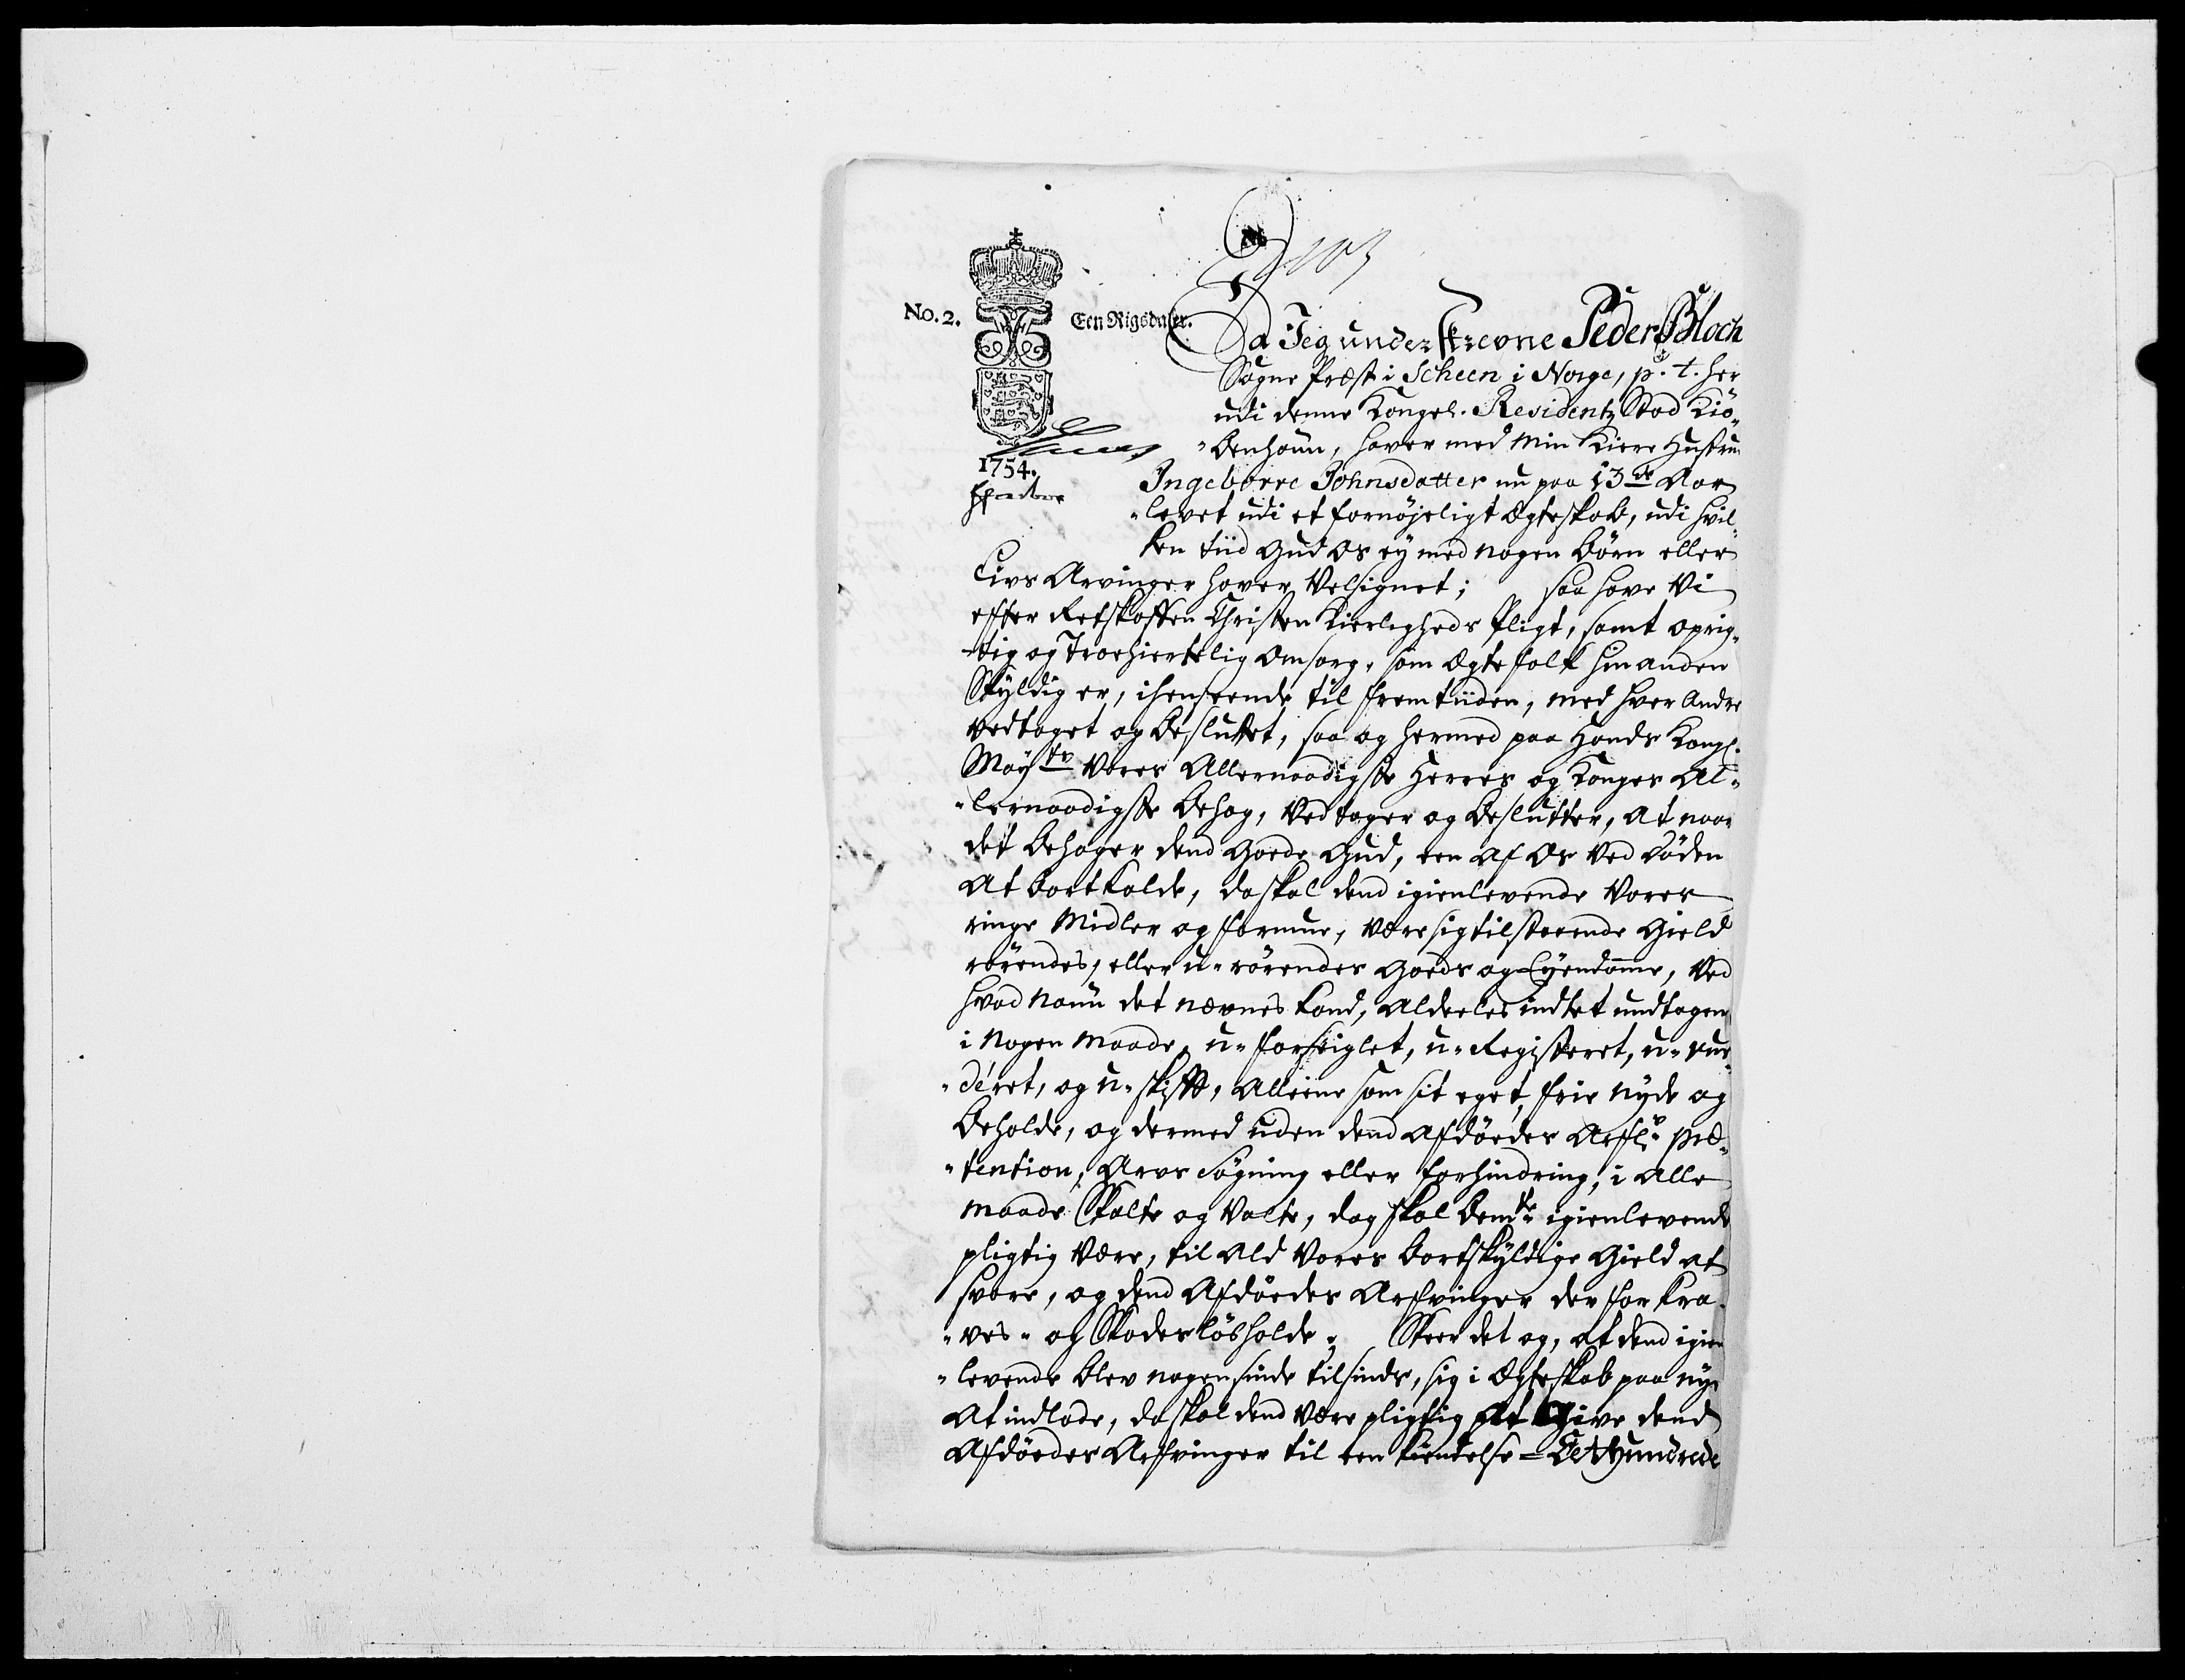 No. 2.
Een Rigsdaler.
1754.
Da Jeg underskrevne Peder Bloch
Sogne Præst i Scheen i Norge, p. t. her
udi denne Kongel. Residentz Stad Kiö„
„benhaun, haver med min Kiere Hustrue
Ingeborre Johnsdatter nu paa 13de Aar
„levet udi et fornöjeligt Ægteskab, udi hvil„
ken tiid Gud Os ey med nogen Börn eller
Livs Arvinger haver Velsignet; saa have Vi
effter Retskaffen Christen Kierligheds Pligt, samt oprig„
„tig og Troehiertelig Omsorg, som Ægtefolk hin anden
Skyldig er, i henseende til fremtiiden, med hver Andre
vedtaget og besluttet, saa og hermed paa Hands Kongl.
Mayts Vores Allernaadigste Herres og Konges Al„
„lernaadigste Behag, Vedtager og beslutter, At naar
det behager dend Goede Gud, een af Os ved Döden
At bortkalde, da skal dend igienlevende Vores
ringe Midler og formue, være sig tilstaaende Gield
rörendes, eller u-rörendes Goeds og Eyendomme, Ved
hvad Naun det nævnes kand, Aldeeles indtet undtagen
i Nogen Maade, u-forseiglet, u-Registeret, u-vur„
„déret, og u-skifft, Alleene som sit eget, frie nyde og
Beholde, og dermed uden dend Afdöedes Arffs Præ„
„tention, Arvs Sögning eller forhindring, i Alle
Maade Skalte og Valte, dog skal bemte igienlevende
pligtig Være, til Ald Vores bortskyldige Gield at
svare, og dend Afdöedes Arffvinger der for kra„
„ves- og Skadeslös holde; Skeer det og, at dend igien„
„levende blev nogensinde tilsinds, sig i Ægteskab paa nye
At indlade, da skal dend Være pligtig At Give dend
Afdöedes Arffvinger til een kiendelse = Et Hundrede